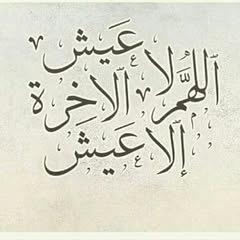 اللهم لا عيش
إلا عيش الآخرة